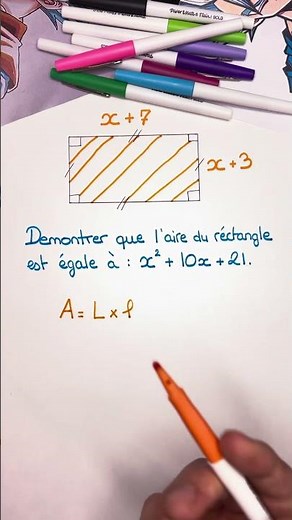 x + 7
x + 3
Demontrer que l'aire du réctangle
est égale à : x² + 10x + 21.
A = L × l